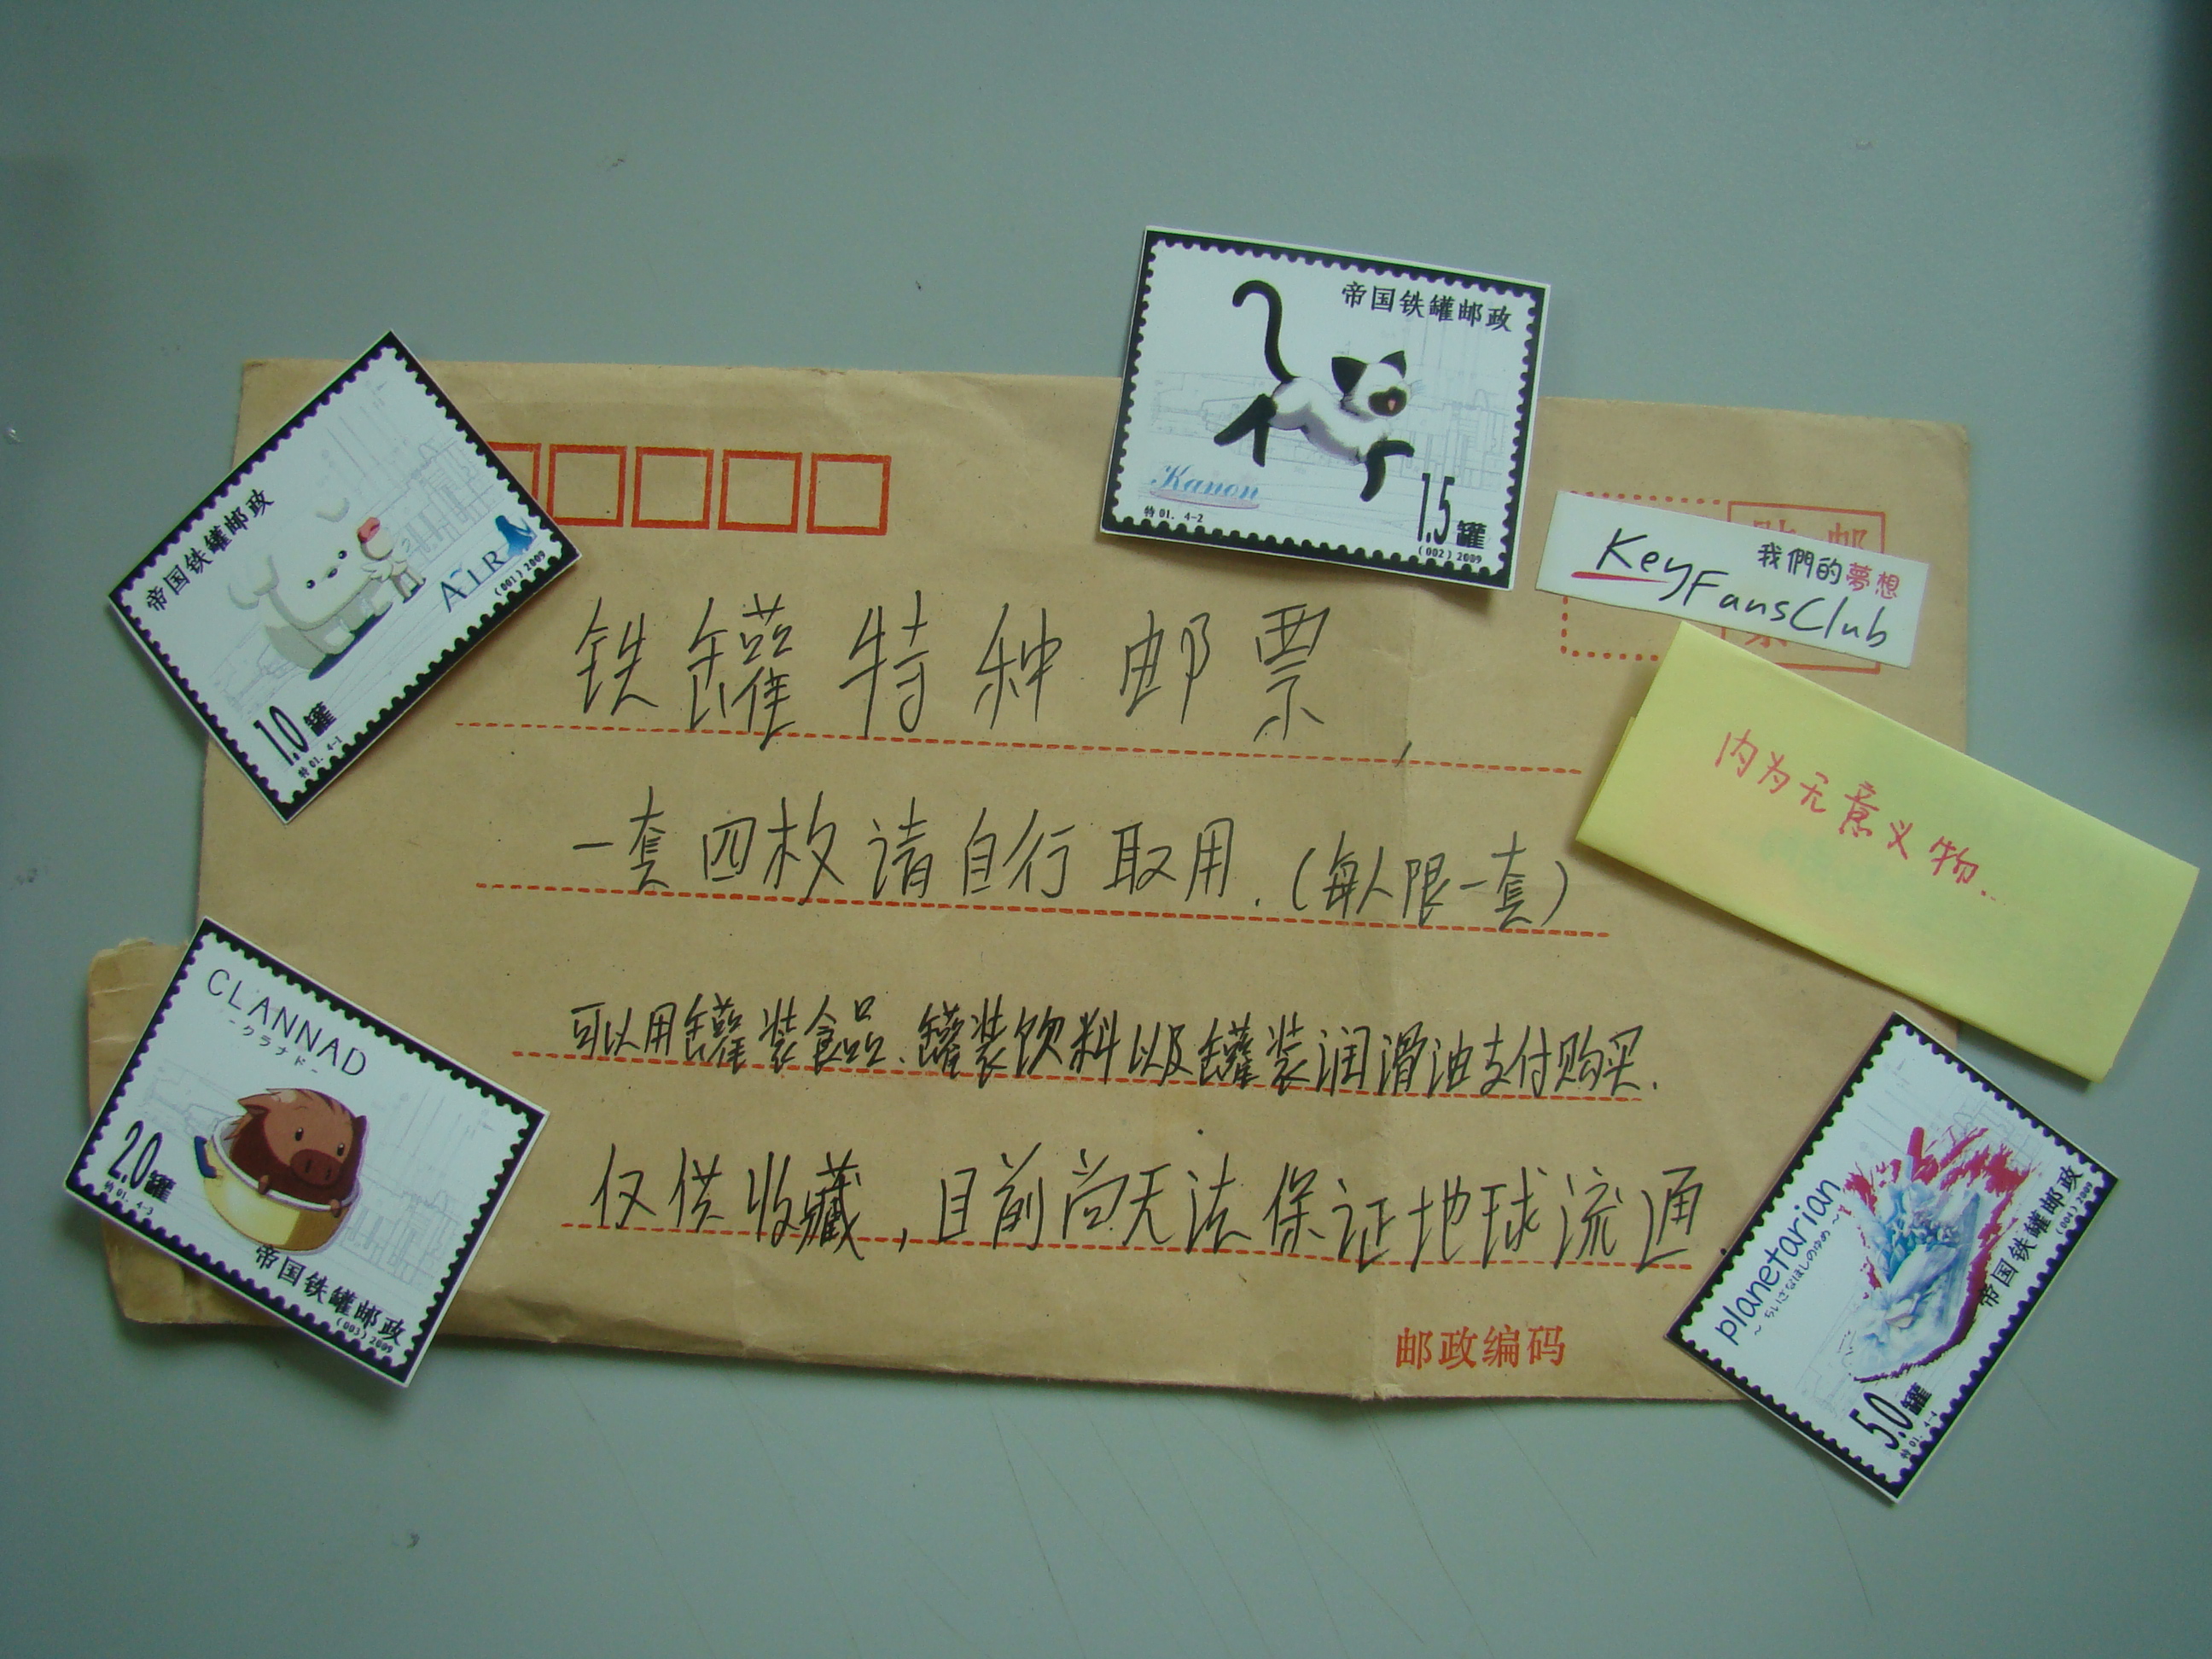 帝国铁罐邮政
Kanon
特01. 4-2
1.5罐
(002)2009
帝国铁罐邮政
AIR
(001)2009
1.0罐
特01. 4-1
我們的夢想
KeyFansClub
铁罐特种邮票,
内为无意义物...
一套四枚请自行取用.(每人限一套)
可以用罐装食品、罐装饮料以及罐装润滑油支付购买.
仅供收藏,目前尚无法保证地球流通.
CLANNAD
-クラナド-
2.0罐
特01. 4-3
帝国铁罐邮政
(003)2009
planetarian
~ちいさなほしのゆめ~
帝国铁罐邮政
(004)2009
5.0罐
特01. 4-4
邮政编码